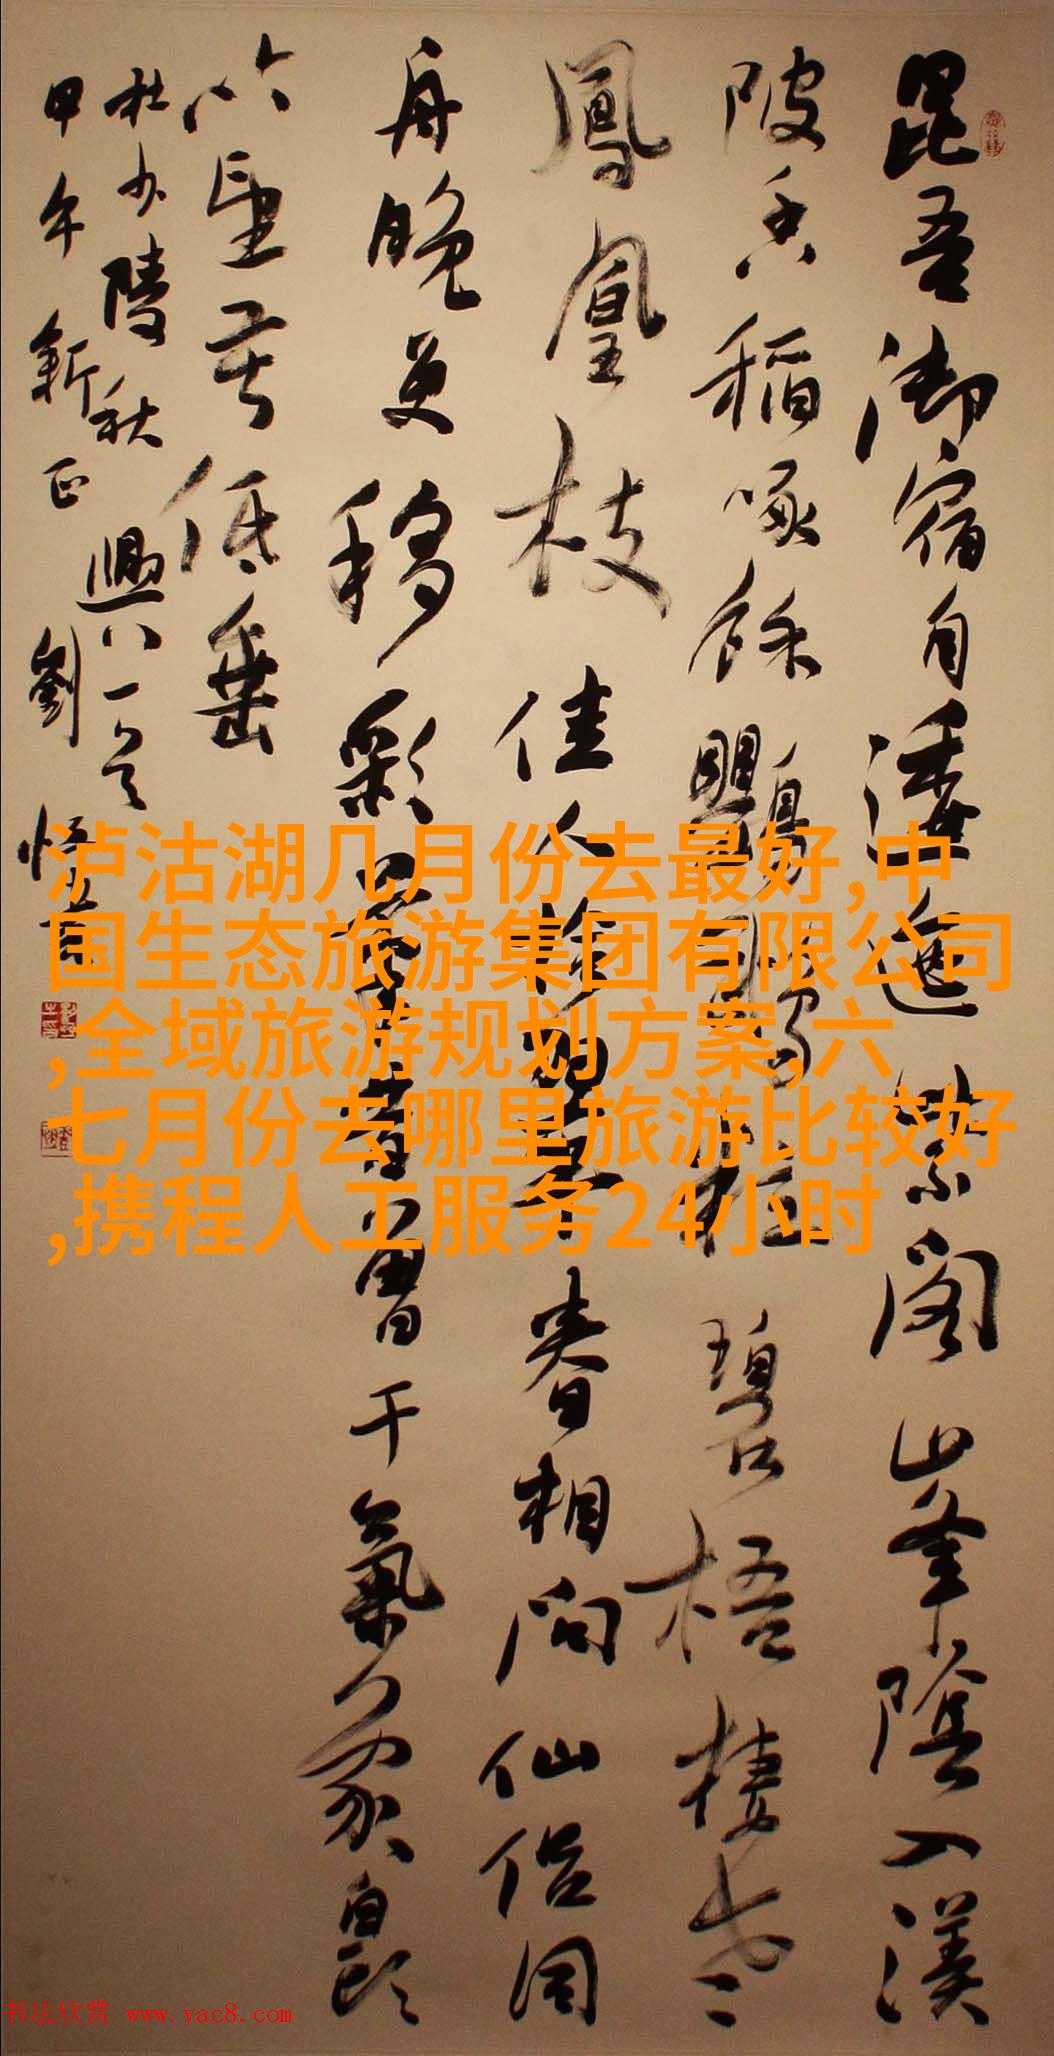 昆吾御宿自逶迤紫閣峯陰入渼
陂香稻啄餘鸚鵡粒碧梧棲老
鳳凰枝佳人拾翠春相問仙侣同
舟晚更移彩筆昔曾干氣象白頭
吟望苦低垂
杜少陵秋興八一首
甲午新正劉
泸沽湖几月份去最好,中
国生态旅游集团有限公司
,全域旅游规划方案,六
七月份去哪里旅游比较好
,携程人工服务24小时
书法欣赏 www.yac8.com